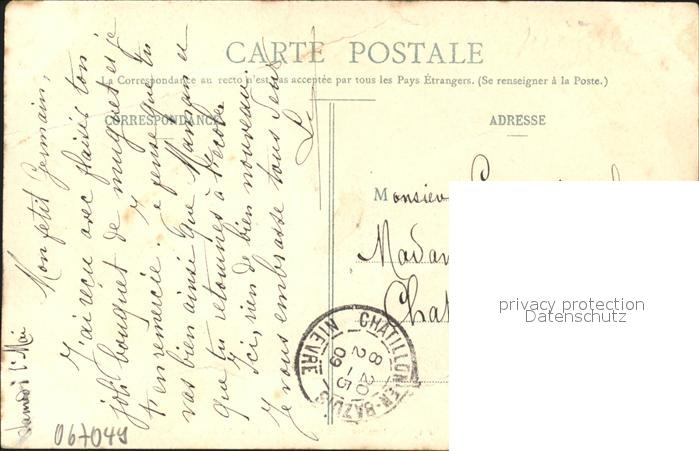 CARTE POSTALE
La Correspondance au recto n'est pas acceptée par tous les Pays Étrangers. (Se renseigner à la Poste.)
CORRESPONDANCE
ADRESSE
Samedi 1er Mai
Mon petit Germain,
J'ai reçu avec plaisir ton
joli bouquet de muguet et je
t'en remercie. Je pense que tu
vas bien ainsi que Maman et
que tu retournes à l'école.
Ici, rien de bien nouveau.
Je vous embrasse tous deux
Monsieur
Madam
Chat
CHATILLON-EN-BAZOIS
NIÈVRE
8 20
2 -5
09
067049
privacy protection
Datenschutz